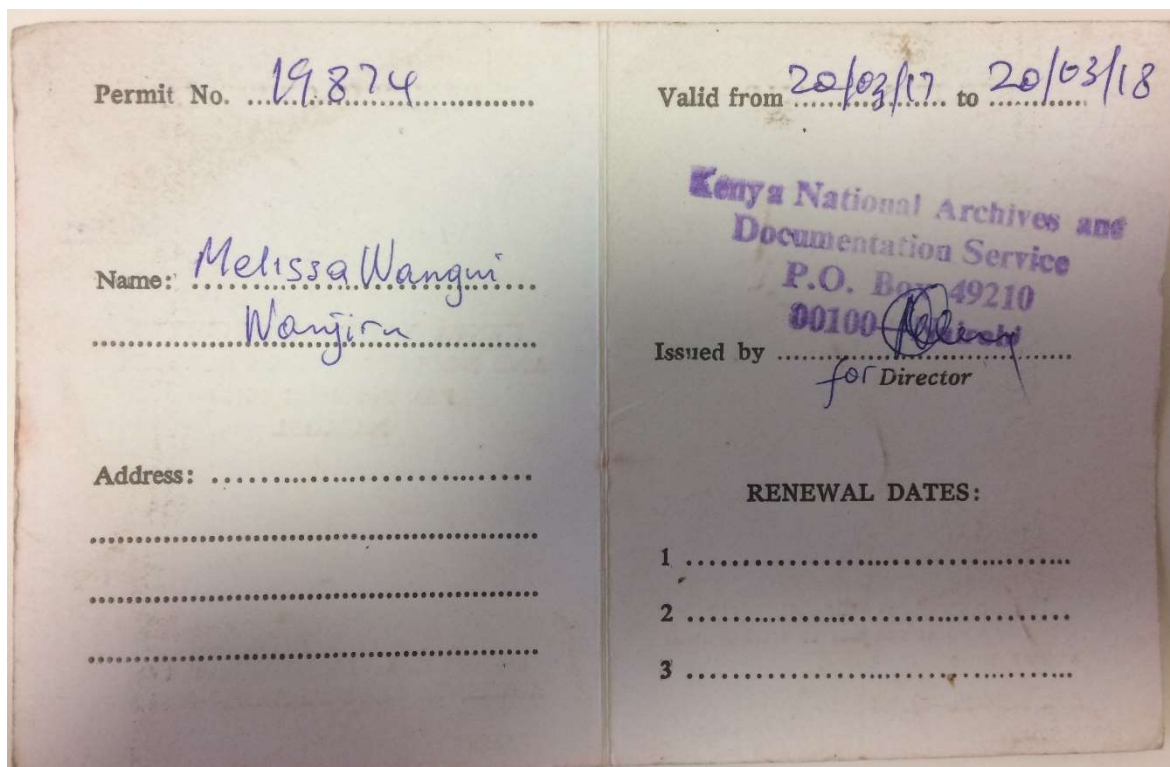 Permit No. 19874
Name: Melissa Wangui
Wanjiru
Address:
Valid from 20/03/17 to 20/03/18
Kenya National Archives and
Documentation Service
P.O. Box 49210
00100
Issued by
for Director
RENEWAL DATES:
1
2
3